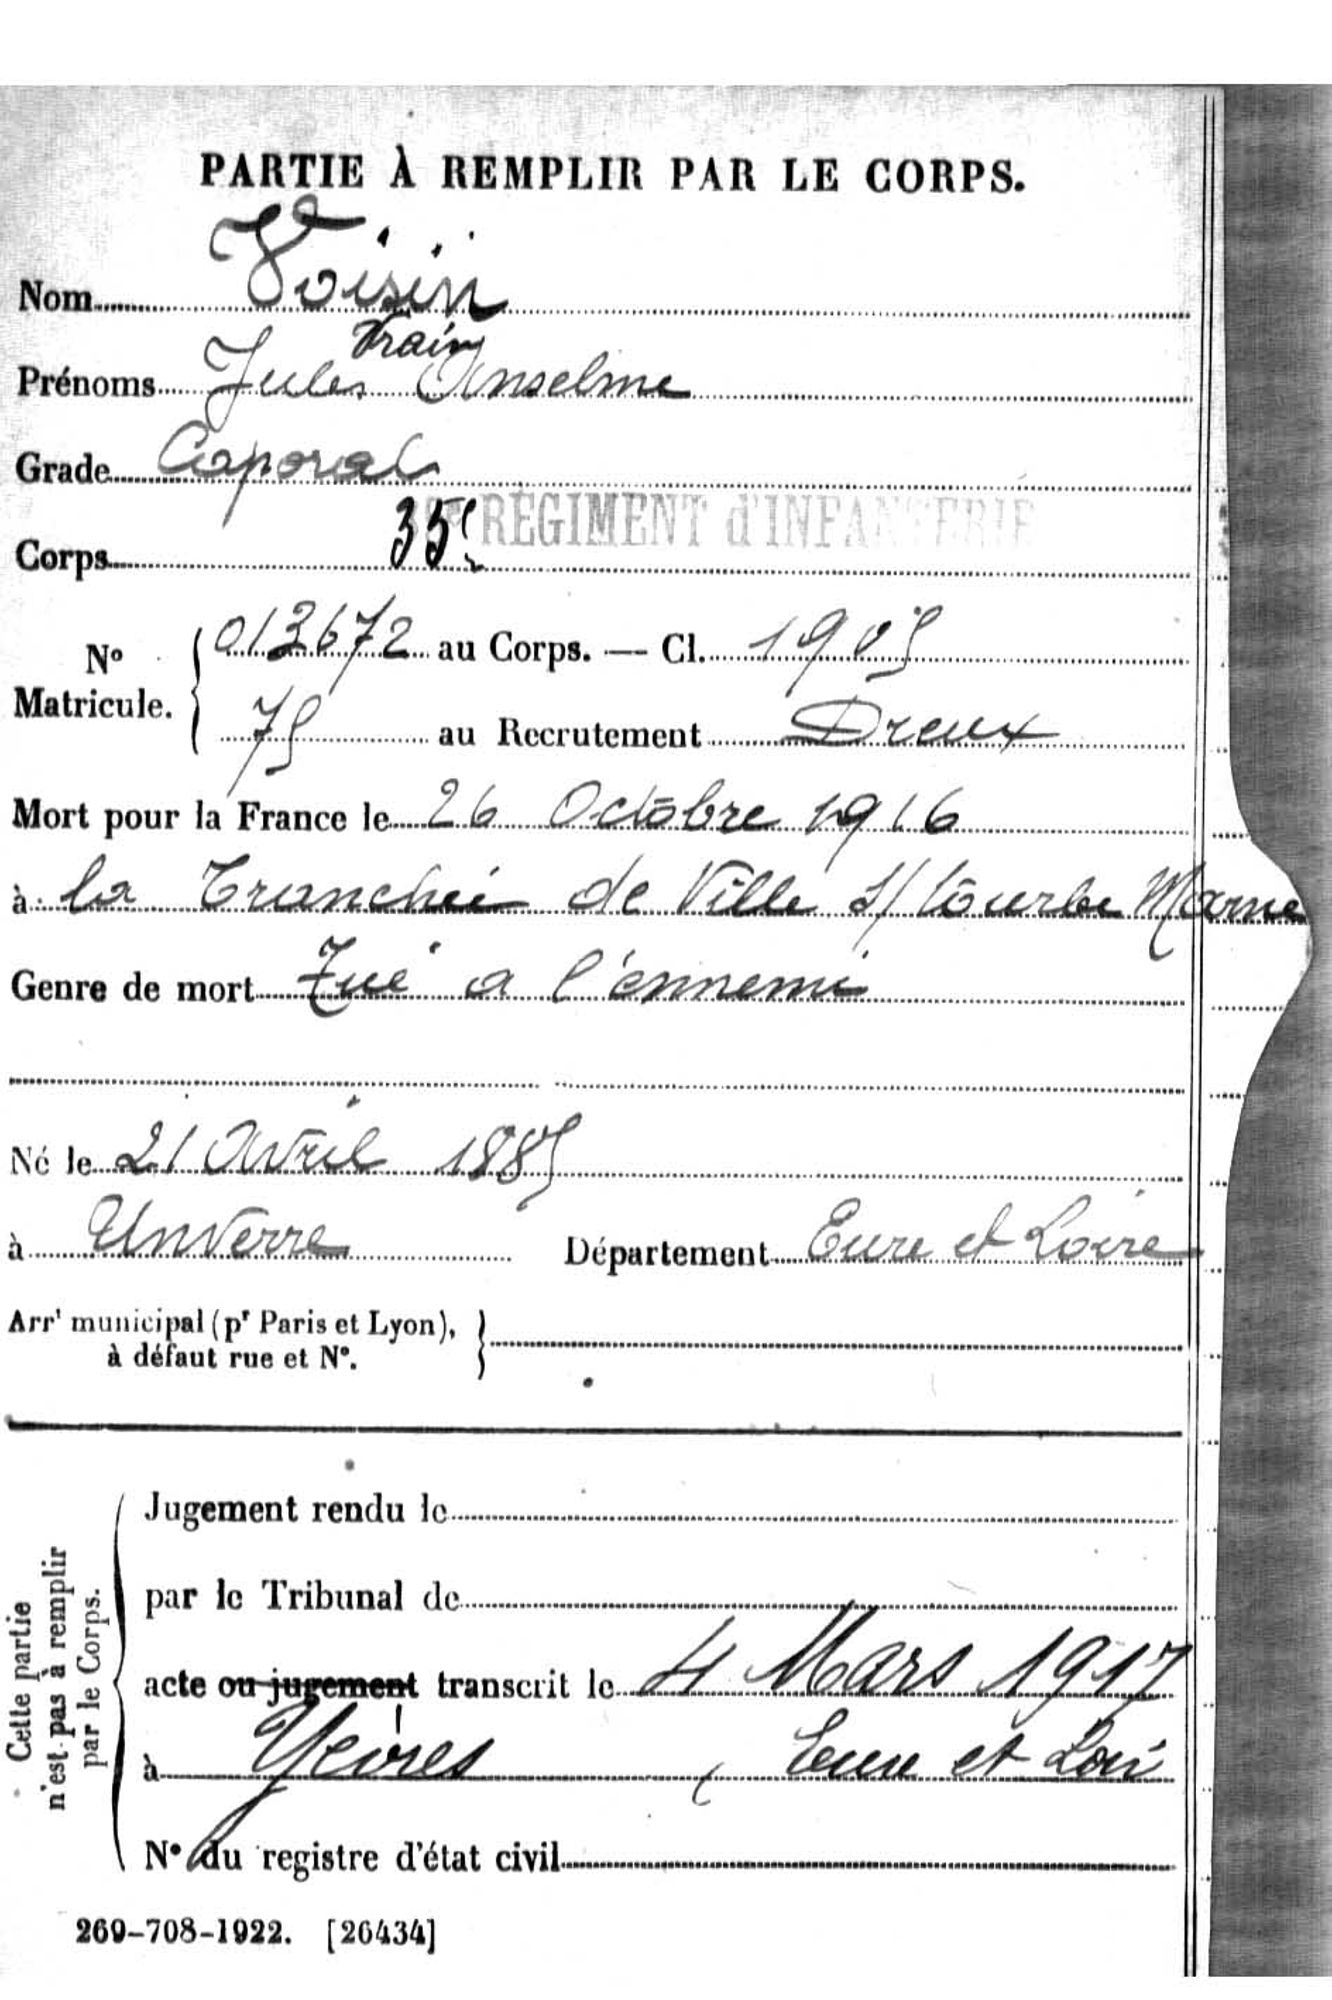 PARTIE À REMPLIR PAR LE CORPS.
Nom Voisin
Vrain
Prénoms Jules Anselme
Grade Caporal
Corps 35e RÉGIMENT d'INFANTERIE
No Matricule. 013672 au Corps. — Cl. 1905
75 au Recrutement Dreux
Mort pour la France le 26 Octobre 1916
à la Tranchée de Ville s/ tourbe Marne
Genre de mort Tué a l'ennemi
Né le 21 Avril 1885
à Unverre Département Eure et Loire
Arrt municipal (pr Paris et Lyon),
à défaut rue et No.
Cette partie n'est pas à remplir par le Corps.
Jugement rendu le
par le Tribunal de
acte ou jugement transcrit le 4 Mars 1917
à Yèvres (Eure et Loir
No du registre d'état civil
269-708-1922. [26434]